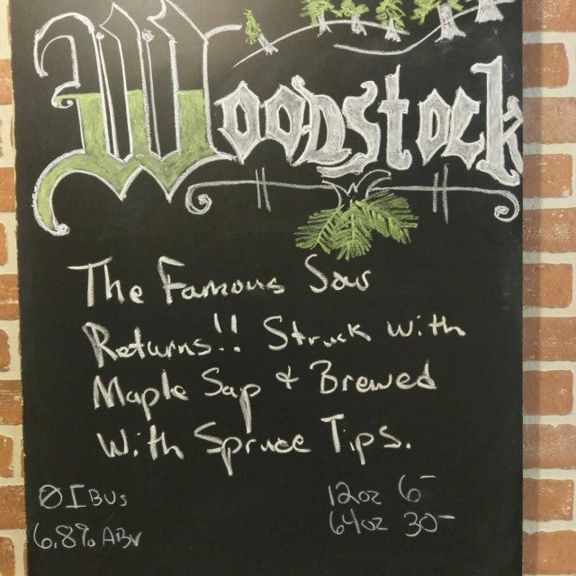 Woodstock
The Famous Sour
Returns!! Struck With
Maple Sap & Brewed
With Spruce Tips.
0 IBUs
6.8% ABV
12oz 6-
64oz 30-